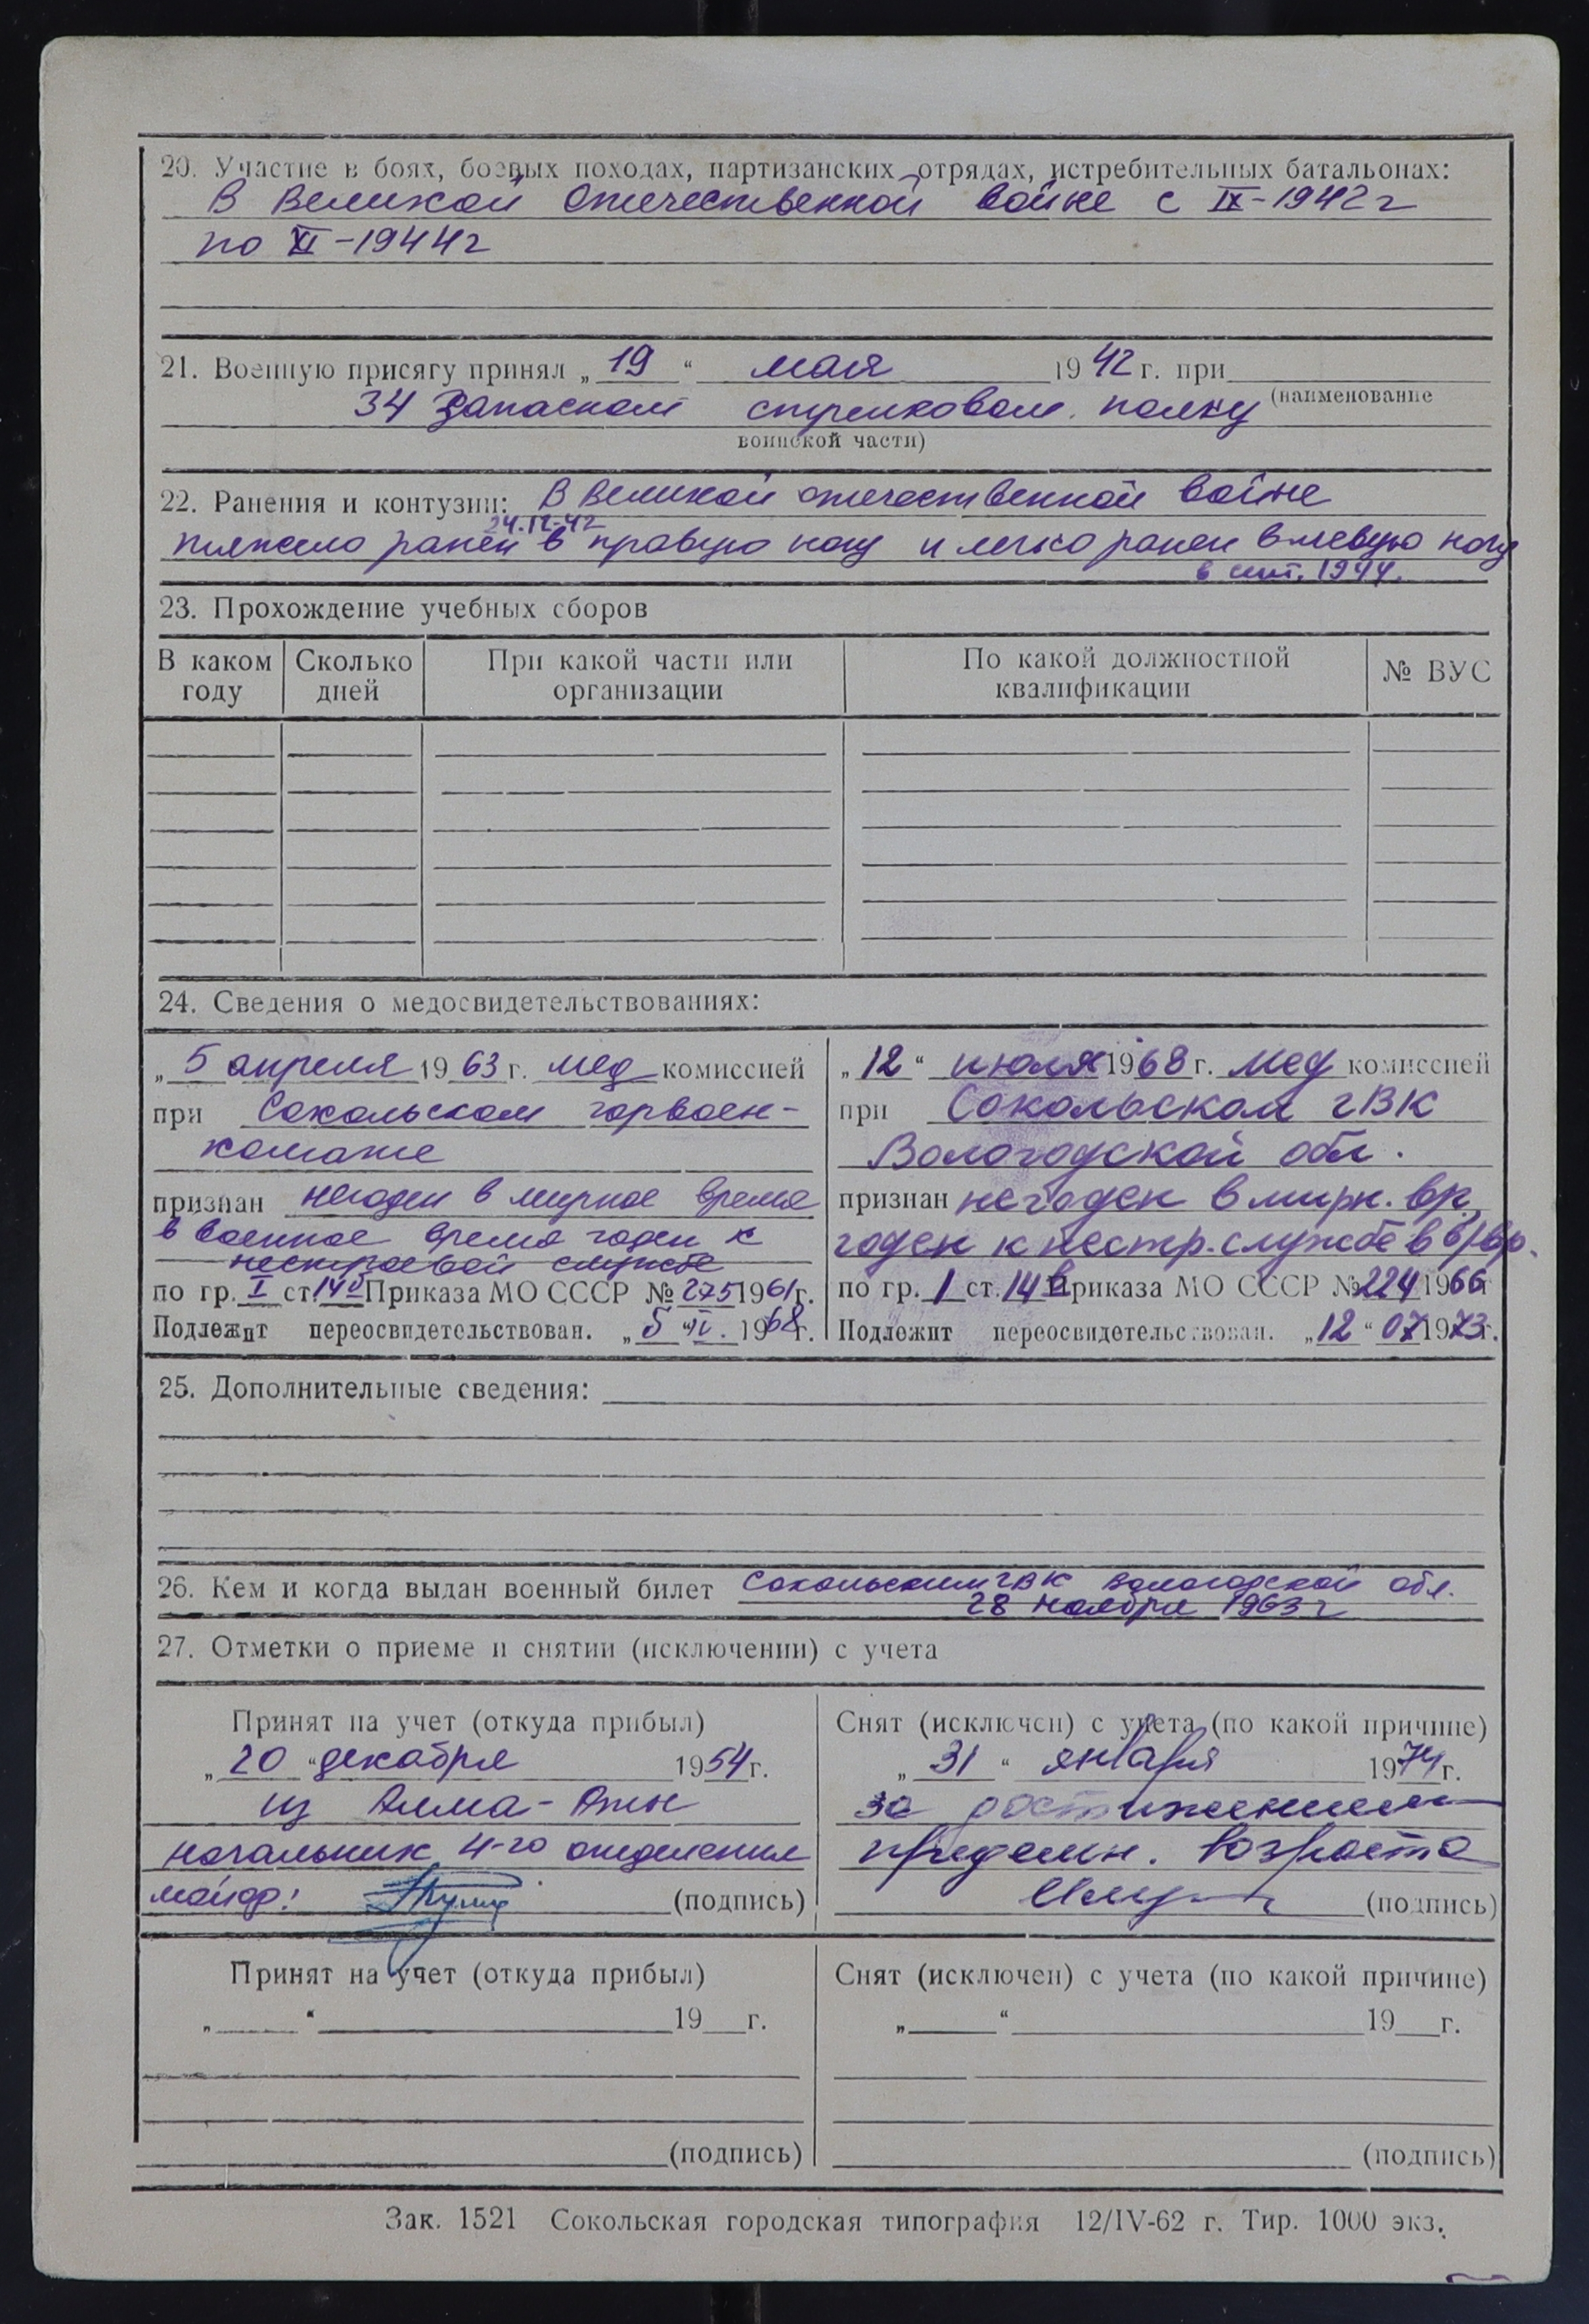 20. Участие в боях, боевых походах, партизанских отрядах, истребительных батальонах:
В Великой Отечественной войне с IX-1942 г
по XI-1944 г
21. Военную присягу принял „19“ мая 1942 г. при
34 Запасном стрелковом полку (наименование
воинской части)
22. Ранения и контузии: В Великой отечественной войне
24.12-42
тяжело ранен в правую ногу и легко ранен в левую ногу
в сент. 1944.
23. Прохождение учебных сборов
В каком году Сколько дней При какой части или организации По какой должностной квалификации № ВУС
24. Сведения о медосвидетельствованиях:
„5 апреля 1963 г. мед комиссией
при Сокольском горвоен-
комате
признан негоден в мирное время
в военное время годен к
нестроевой службе
по гр. I ст. 14 Приказа МО СССР № 275 1961 г.
Подлежит переосвидетельствован. „5“ IV. 1968 г.
„12“ июля 1968 г. мед комиссией
при Сокольском ГВК
Вологодской обл.
признан негоден в мирн. вр.,
годен к нестр. службе в в/вр.
по гр. 1 ст. 14 в Приказа МО СССР № 224 1966
Подлежит переосвидетельствован. „12“ 07 1973 г.
25. Дополнительные сведения:
26. Кем и когда выдан военный билет Сокольским ГВК Вологодской обл.
28 ноября 1963 г
27. Отметки о приеме и снятии (исключении) с учета
Принят на учет (откуда прибыл)
„20“ декабря 1954 г.
из Алма-Аты
начальник 4-го отделения
майор: (подпись)
Снят (исключен) с учета (по какой причине)
„31“ января 1974 г.
за достижением
предельн. возраста
(подпись)
Принят на учет (откуда прибыл)
„ “ 19 г.
(подпись)
Снят (исключен) с учета (по какой причине)
„ “ 19 г.
(подпись)
Зак. 1521 Сокольская городская типография 12/IV-62 г. Тир. 1000 экз.